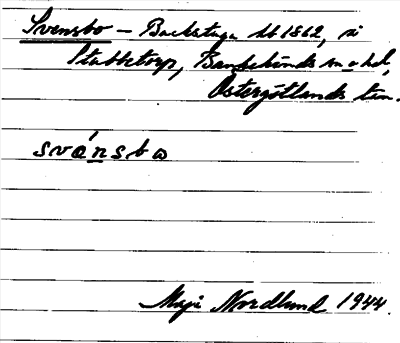 Svensbo – Backstuga Hb 1862, i
Stubbetorp, Bankekinds sn o hd,
Östergötlands län.
svä́nsbo
Maji Nordlund 1944.